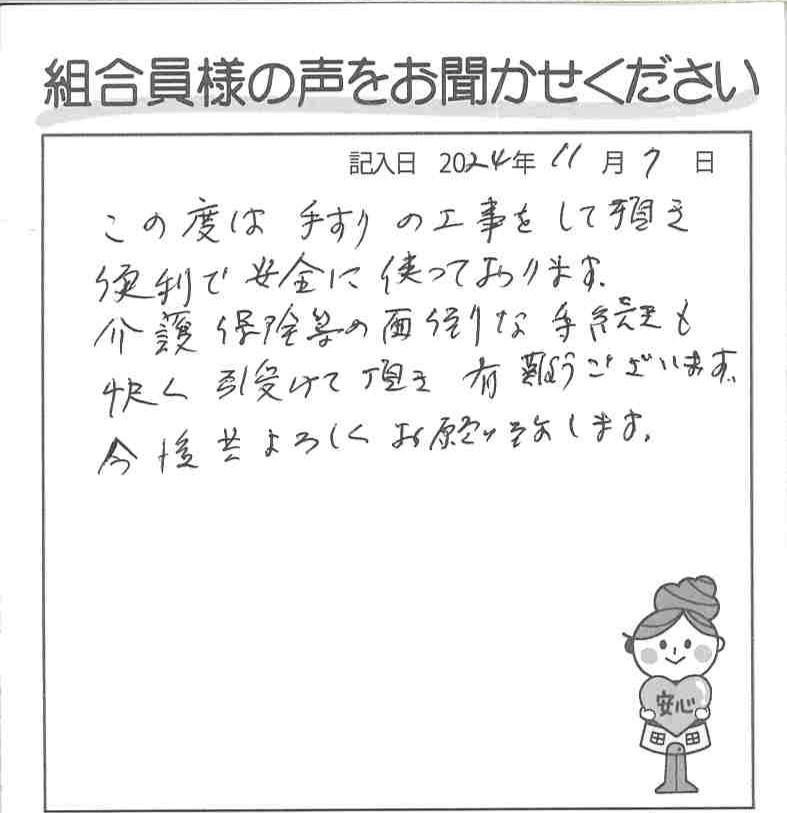 組合員様の声をお聞かせください
記入日 2024年 11月 7日
この度は 手すりの工事をして頂き
便利で安全に使っております。
介護保険等の面倒な手続きも
快く引受けて頂き 有難うございます。
今後共よろしくお願い致します。
安心